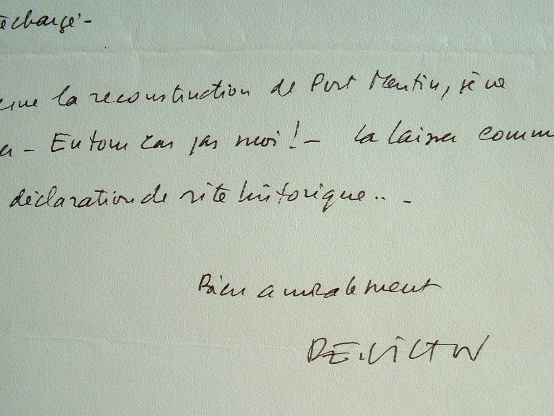 échargé -
la reconstruction de Port Martin, je ne
- En tout cas pas moi ! - la laisser comm
déclaration de site historique.. -
Bien amicalement
P.E. VICTOR